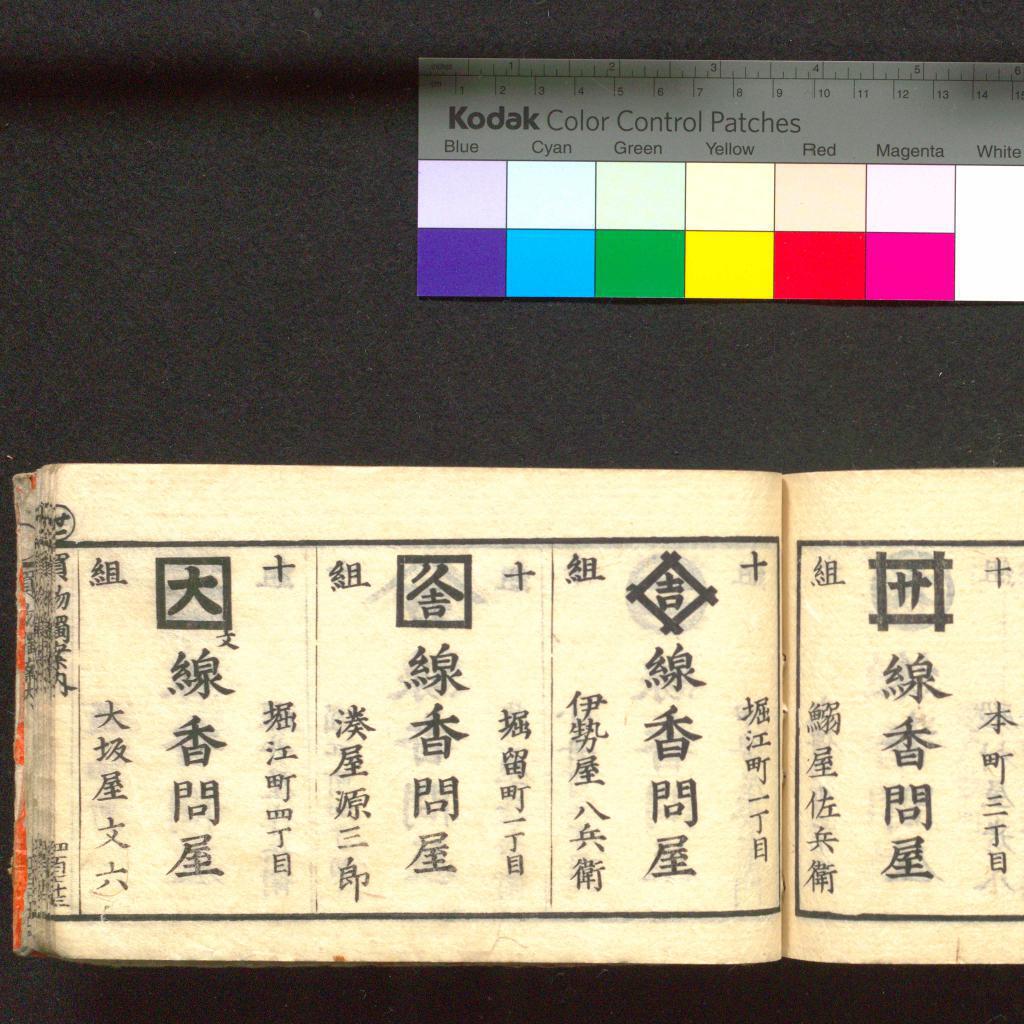 inches 1 2 3 4 5 6
cm 1 2 3 4 5 6 7 8 9 10 11 12 13 14 15
Kodak Color Control Patches
Blue Cyan Green Yellow Red Magenta White
十組
本町三丁目
卅
線香問屋
鰯屋佐兵衛
十組
堀江町一丁目
吉
線香問屋
伊勢屋八兵衛
十組
堀留町一丁目
吉
線香問屋
湊屋源三郎
十組
堀江町四丁目
大
文
線香問屋
大坂屋文六
買物獨案内